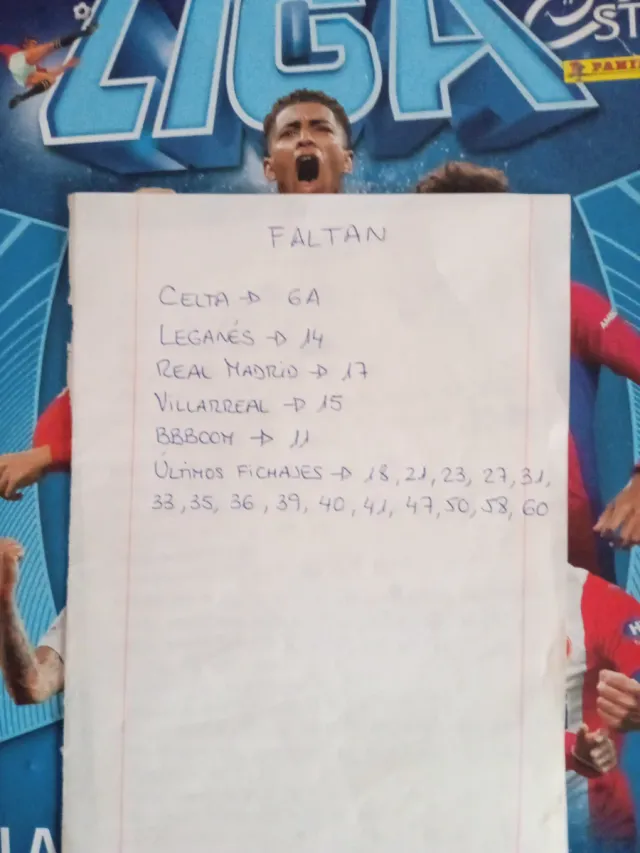 LIGA
ST
PANINI
FALTAN
CELTA → 6A
LEGANÉS → 14
REAL MADRID → 17
VILLARREAL → 15
BBBOOM → 11
ÚLTIMOS FICHAJES → 18, 21, 23, 27, 31,
33, 35, 36, 39, 40, 41, 47, 50, 58, 60
LA